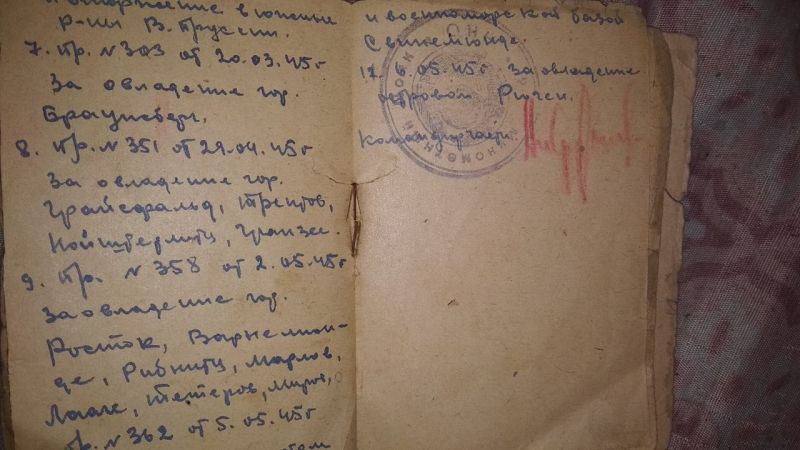 в южние
р-ни В. Пруссии.
7. Пр. № 303 от 20.03.45г
За овладение гор.
Браунсберг.
8. Пр. № 351 от 29.04.45г
За овладение гор.
Грайсфальд, Трептов,
Нойштерлитц, Гранзее.
9. Пр. № 358 от 2.05.45г
За овладение гор.
Росток, Варнемюн-
де, Рибнитц, Марлов,
Лааге, Тетеров, Миров,
Пр. № 362 от 5.05.45г
и военноморской базой
Свинемюнде.
6.05.45г За овладение
островом Рюген.
Командир части: